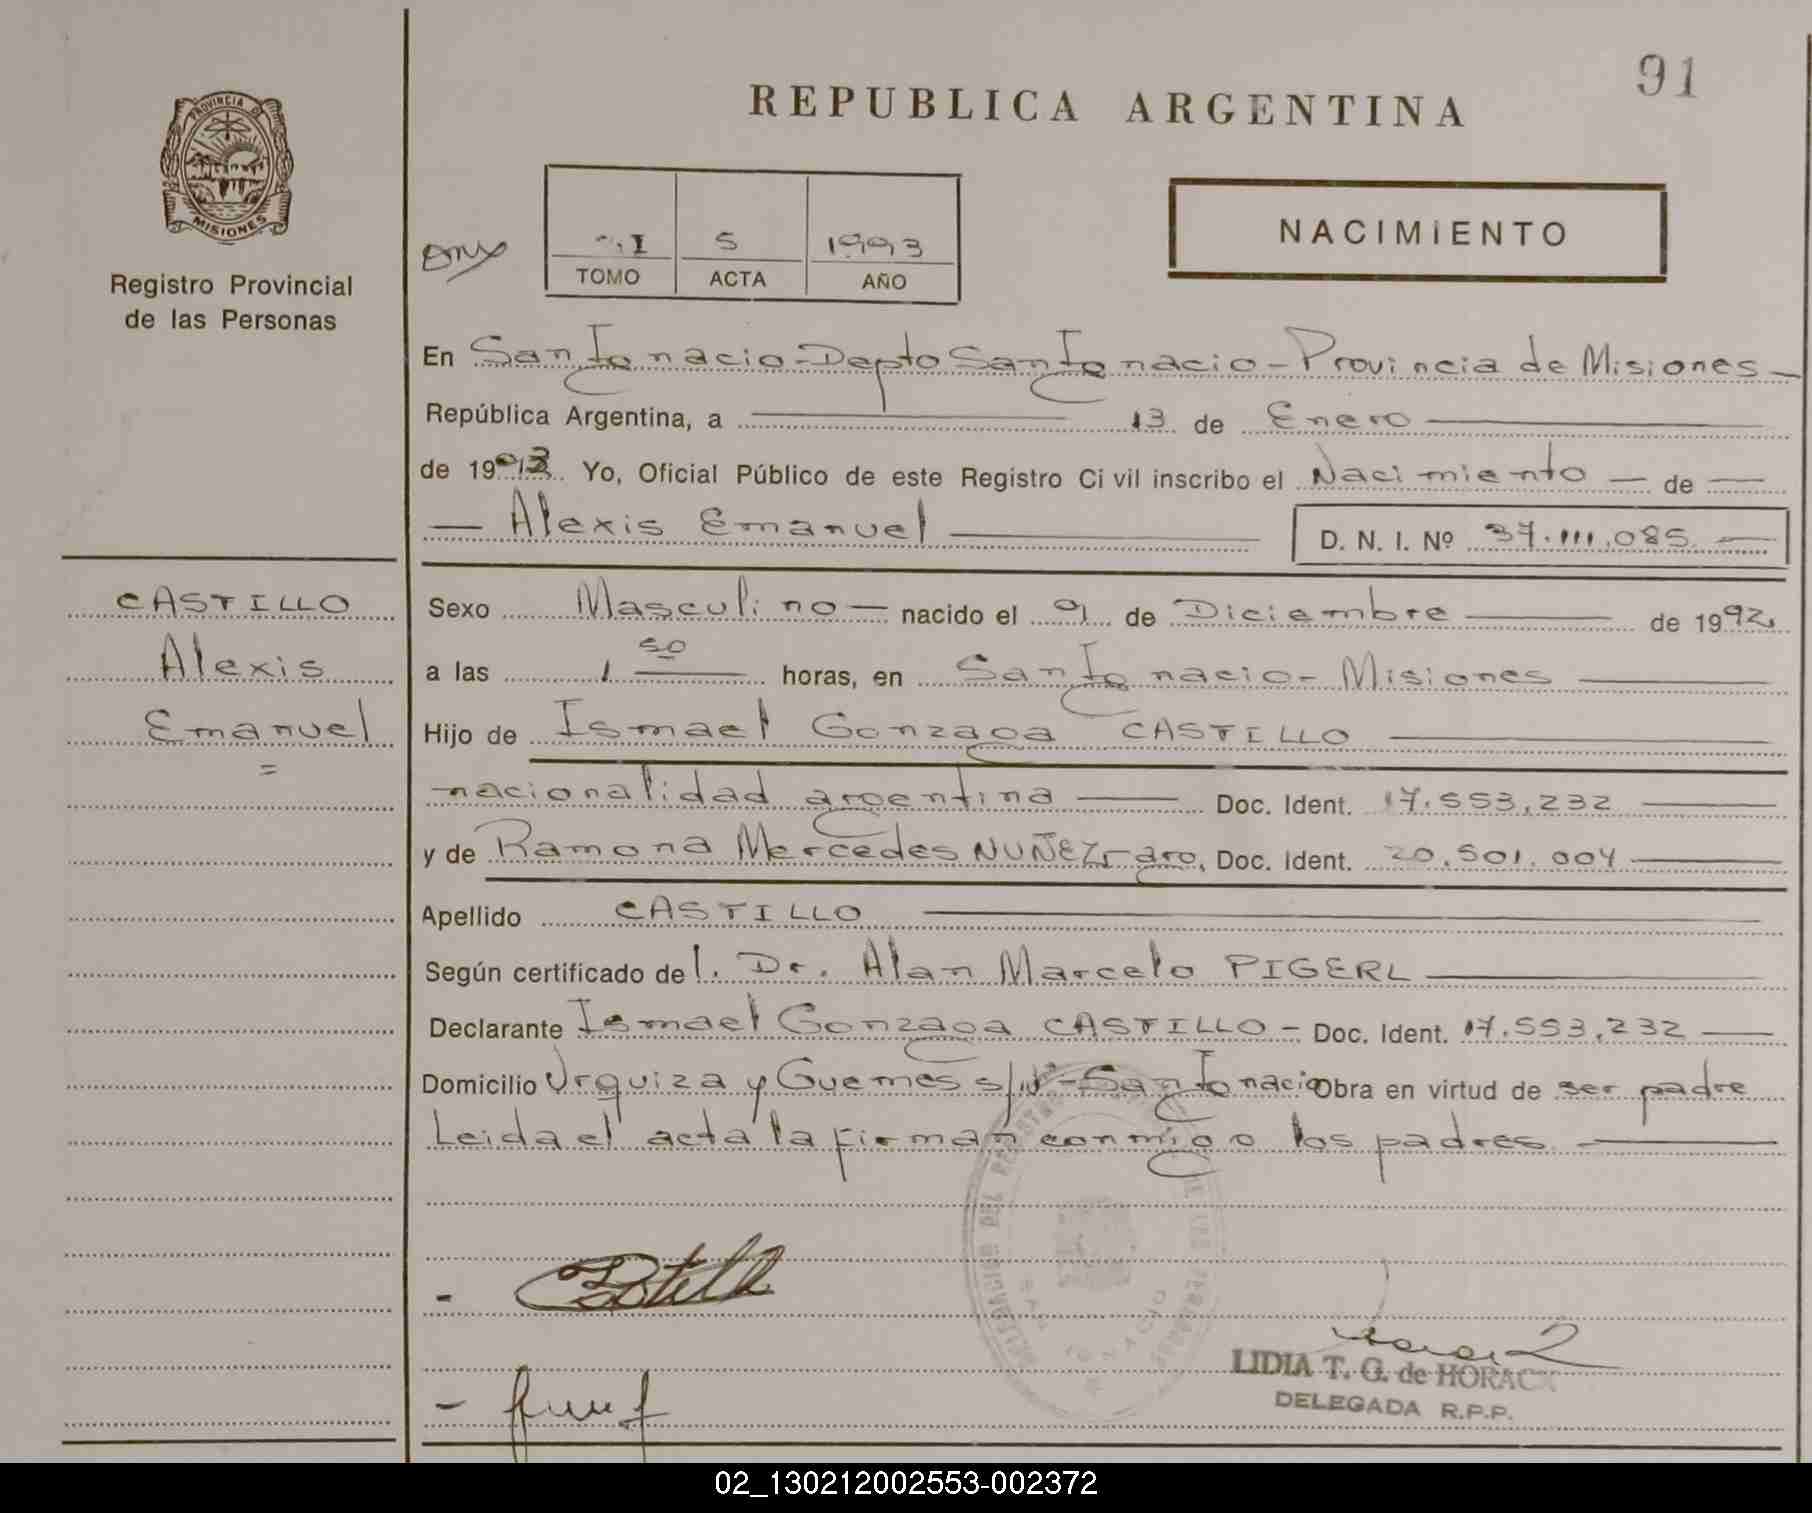 91
REPUBLICA ARGENTINA
PROVINCIA DE
MISIONES
Registro Provincial
de las Personas
I 5 1993
TOMO ACTA AÑO
NACIMIENTO
En San Ignacio - Depto San Ignacio - Provincia de Misiones -
República Argentina, a 13 de Enero
de 1993. Yo, Oficial Público de este Registro Civil inscribo el Nacimiento - de -
- Alexis Emanuel
D. N. I. Nº 37.111.085 -
CASTILLO
Alexis
Emanuel
=
Sexo Masculino - nacido el 01 de Diciembre de 1992.
a las 1 50 horas, en San Ignacio - Misiones
Hijo de Ismael Gonzaga CASTILLO
nacionalidad argentina Doc. Ident. 17.553.232
y de Ramona Mercedes NUÑEZ, arg, Doc. Ident. 20.501.004
Apellido CASTILLO
Según certificado de l. Dr. Alan Marcelo PIGERL
Declarante Ismael Gonzaga CASTILLO - Doc. Ident. 17.553.232
Domicilio Urquiza y Guemes s/n - San Ignacio Obra en virtud de ser padre
Leida el acta la firman conmigo los padres.
DELEGACION DEL REGISTRO DE LAS PERSONAS
SAN IGNACIO
LIDIA T. G. de HORACK
DELEGADA R.P.P.
02_130212002553-002372